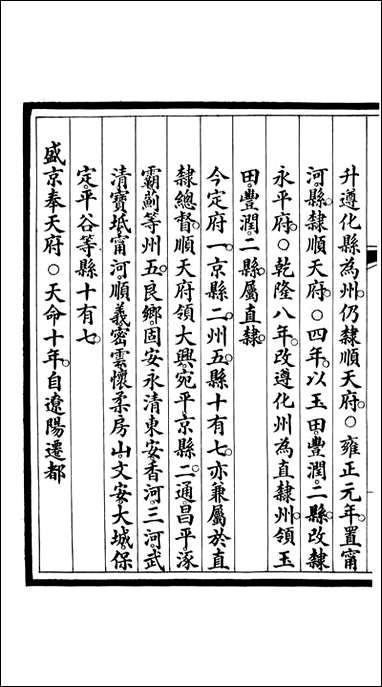 升遵化縣為州仍隸順天府○雍正元年置甯
河縣隸順天府○四年以玉田豐潤二縣改隸
永平府○乾隆八年改遵化州為直隸州領玉
田豐潤二縣屬直隸
今定府一京縣二州五縣十有七亦兼屬於直
隸總督順天府領大興宛平京縣二通昌平涿
霸薊等州五良鄉固安永清東安香河三河武
清寶坻甯河順義密雲懷柔房山文安大城保
定平谷等縣十有七
盛京奉天府○天命十年自遼陽遷都